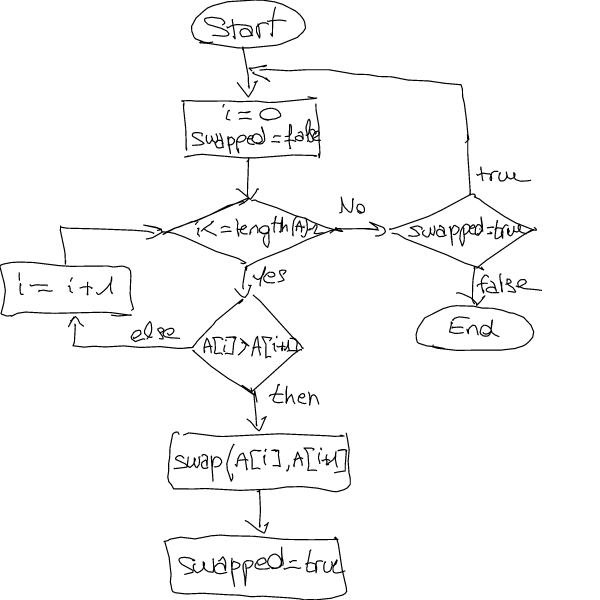 Start
i = 0
swapped = false
true
i <= length(A)-2
No
swapped=true
Yes
false
i = i+1
End
else
A[i]>A[i+1]
then
swap(A[i],A[i+1]
swapped=true